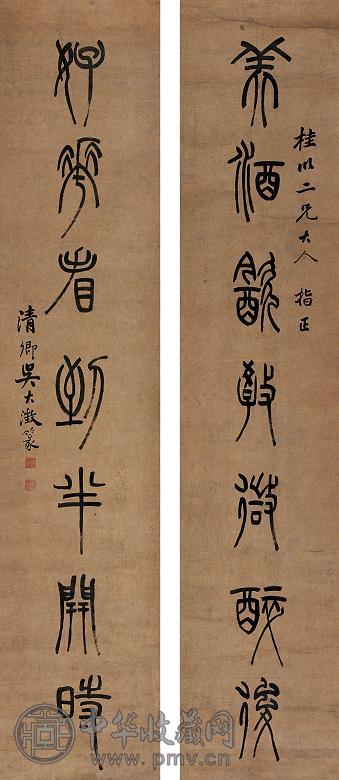 美酒飲教微醉後
桂明二兄大人 指正
好花看到半開時
清卿吳大澂篆
中华收藏网
www.pmv.cn